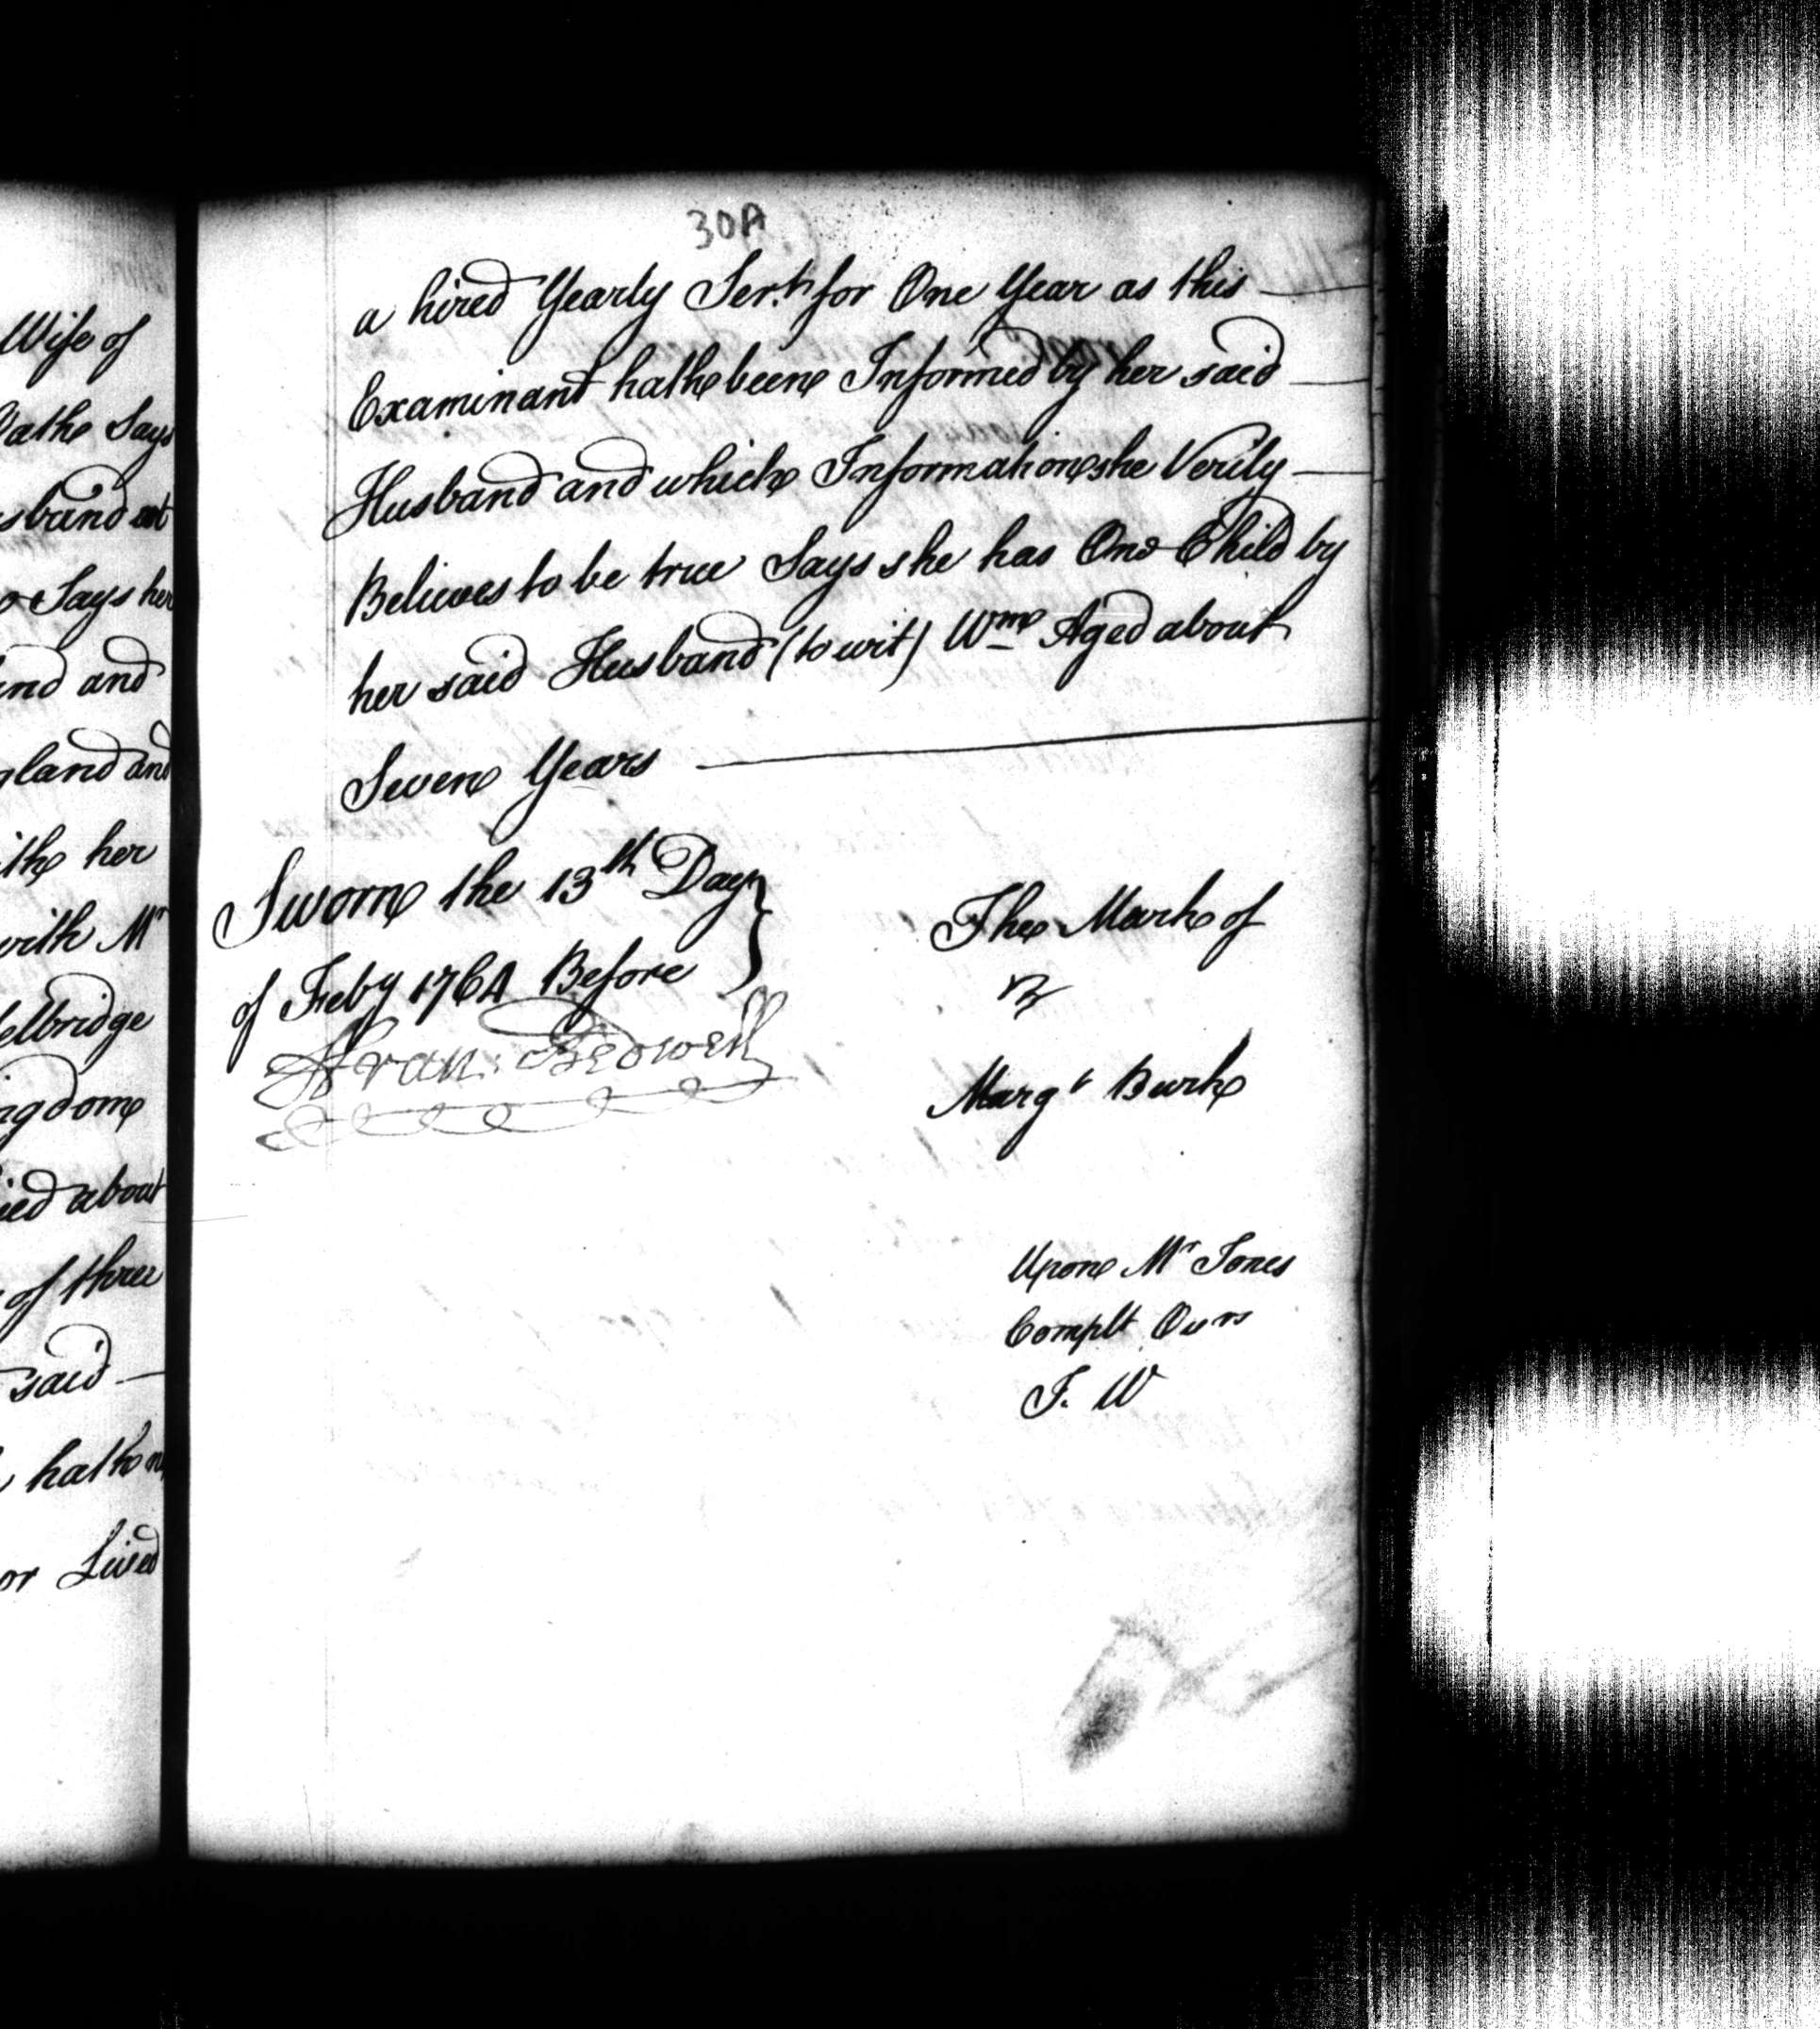 Wife of
Says
sband at
Says her
and and
gland and
ith her
with Mr
elbridge
ngdom
ied about
of three
said
hath n
or Lived
30A
a hired Yearly Servt. for One Year as this
Examinant hath been Informed by her said
Husband and which Information she Verily
Believes to be true Says she has One Child by
her said Husband (to wit) Wm Aged about
Seven Years
Sworn the 13th Day
of Feby 1764 Before
Fran: Bedwell
The Mark of
Margt Burk
Upon Mr Jones
Complt Ours
J. W